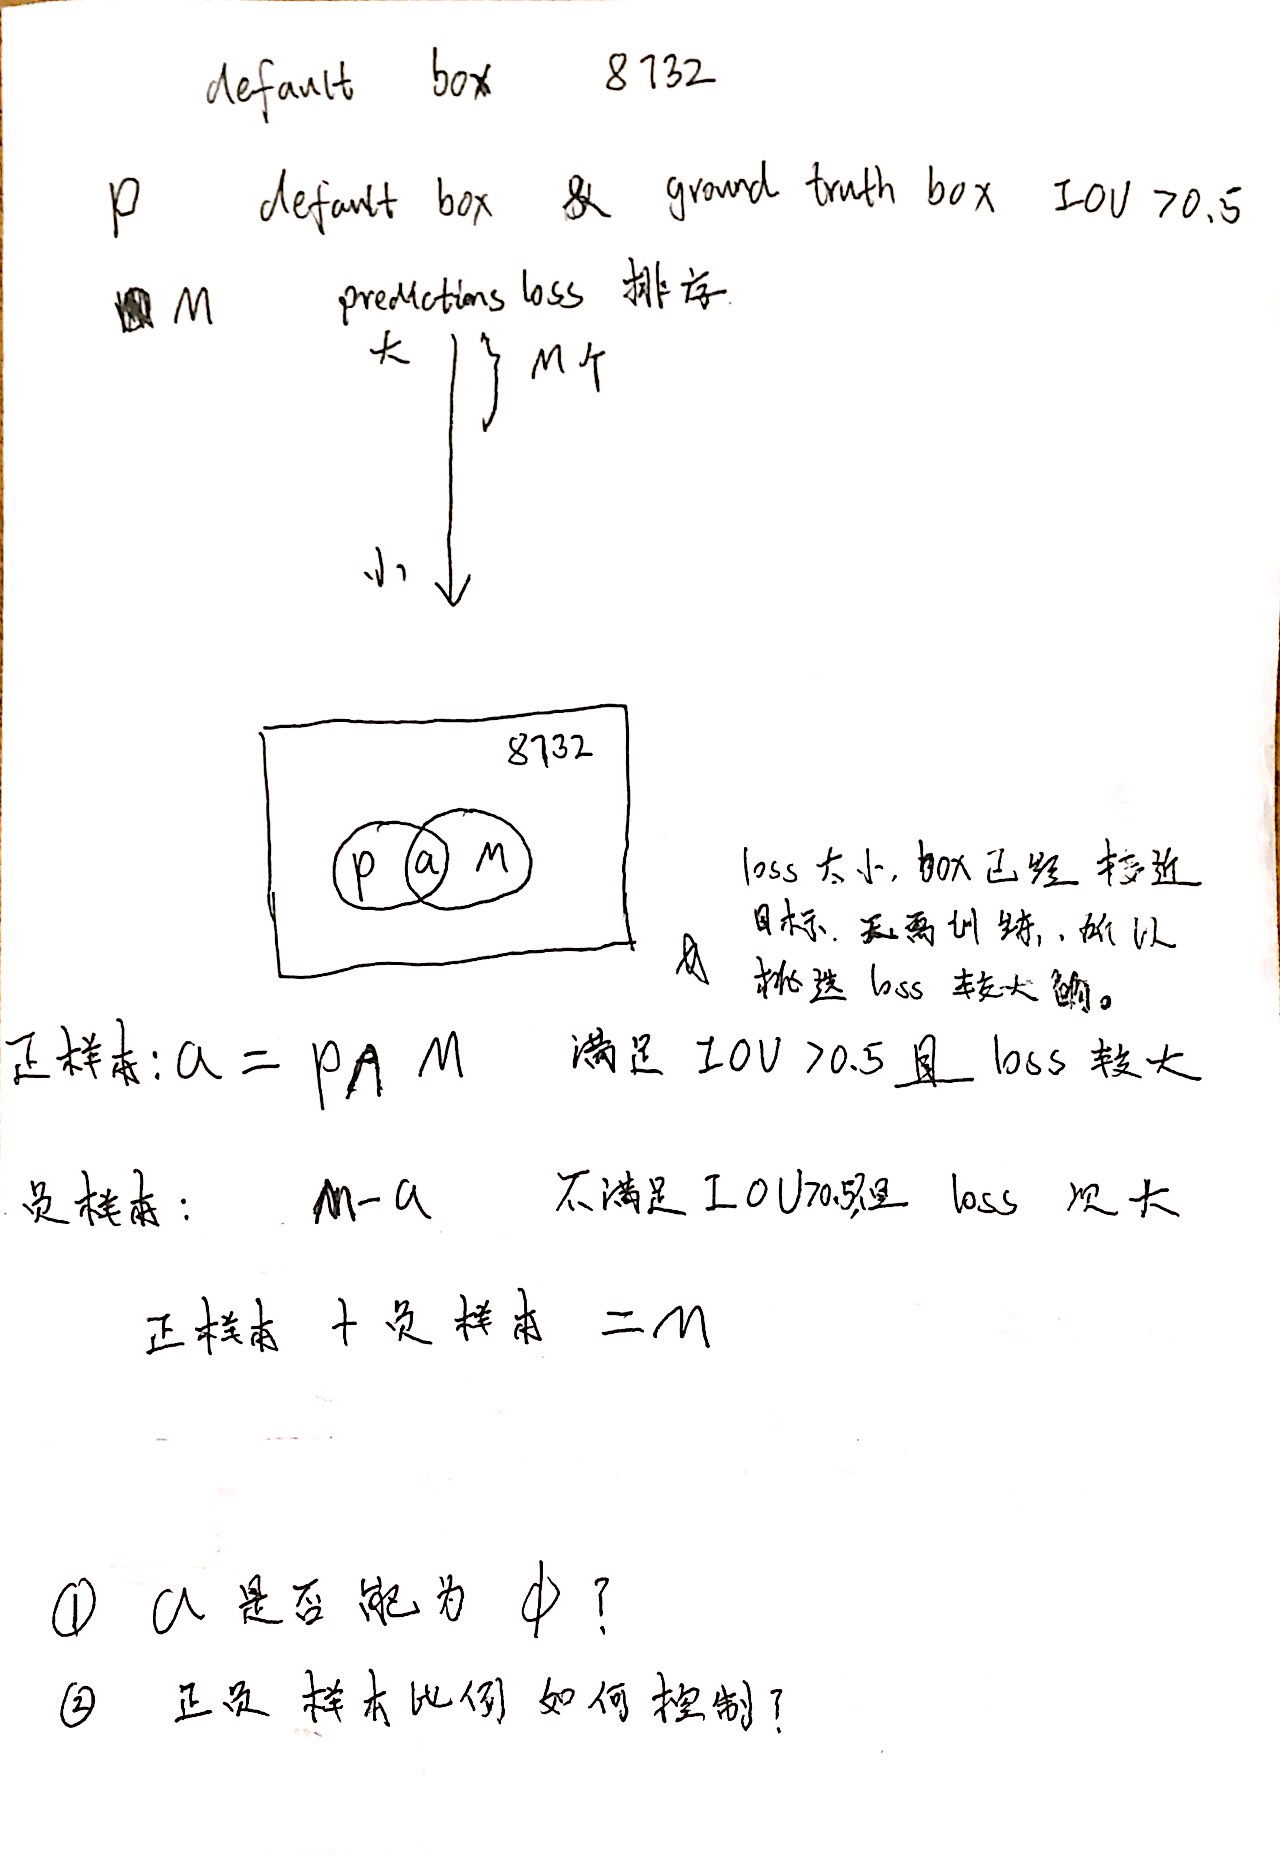 default box 8732
P default box & ground truth box IOU >0.5
M predictions loss 排序
大
M个
小
8732
P a M
loss 太小, box 已经接近
目标. 无需训练, 所以
挑选 loss 较大的。
正样本: a = P∩M 满足 IOU >0.5 且 loss 较大
负样本: M-a 不满足IOU>0.5但 loss 次大
正样本 + 负样本 = M
① a是否能为 φ?
② 正负样本比例如何控制?